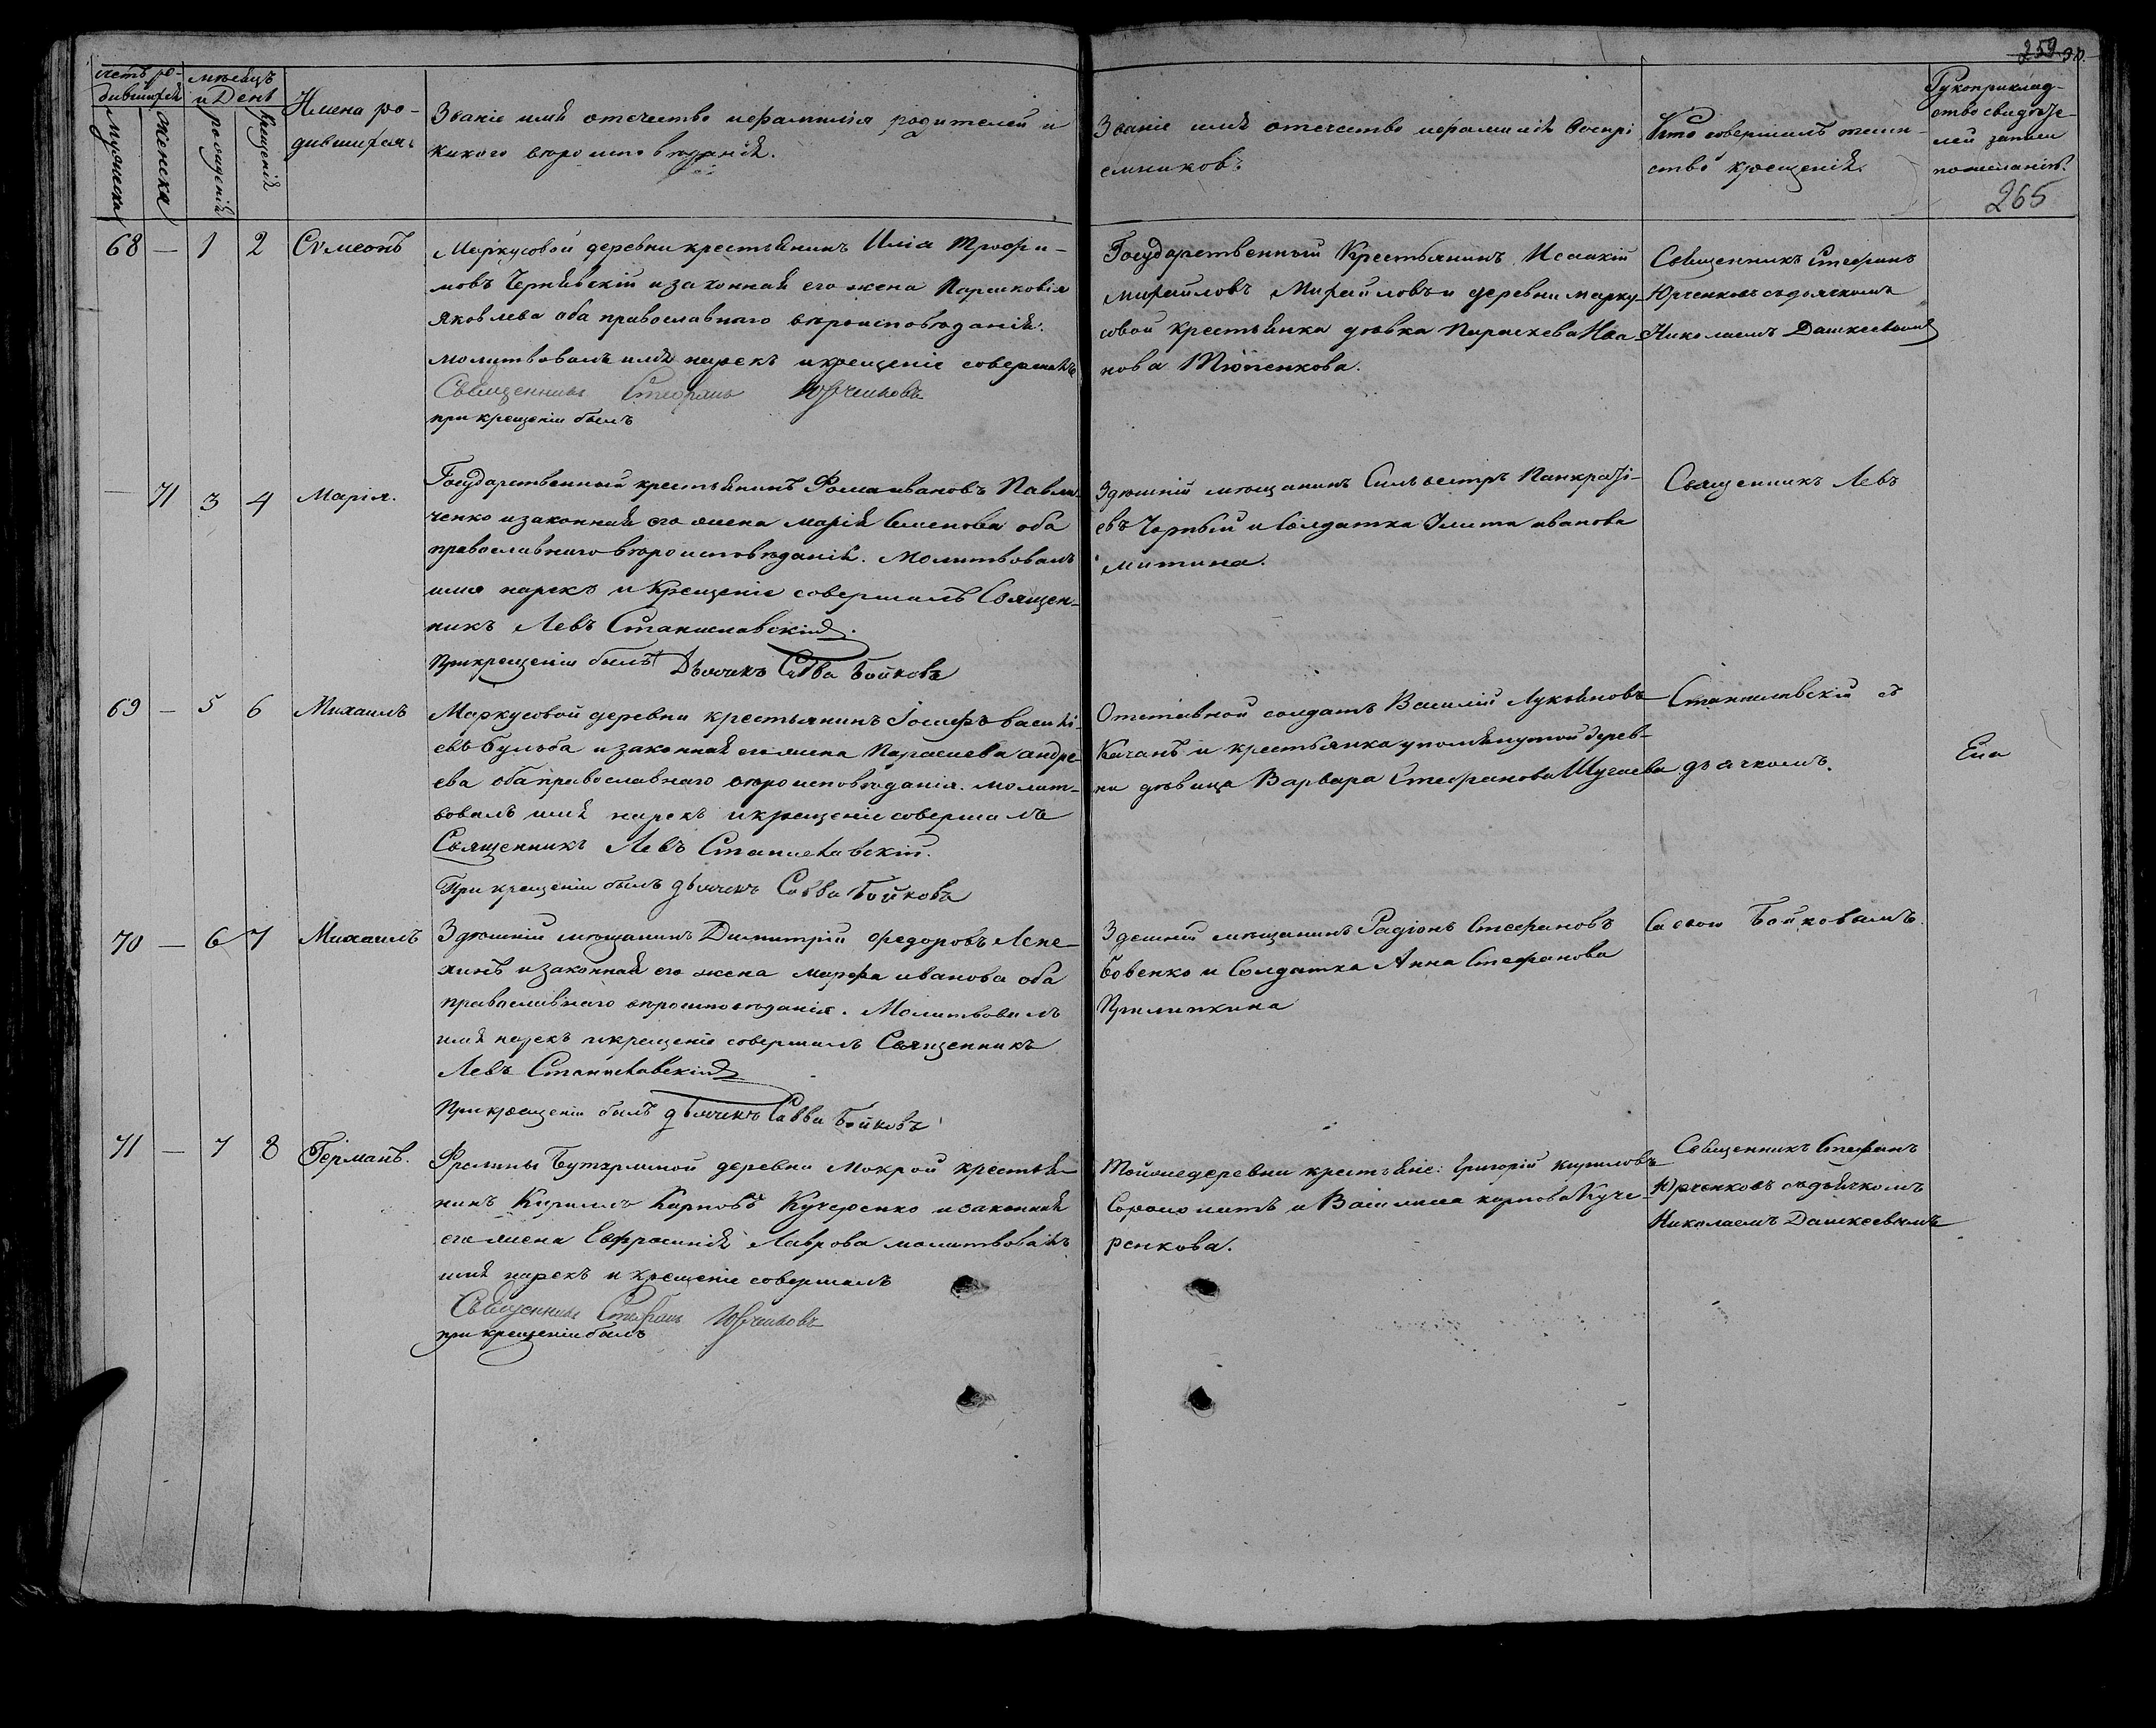 259 90.
Счетъ ро-
дившихся
Мужеска
Женска
мѣсяцъ
и День
рожденія
крещенія
Имена ро-
дившихся.
Званіе имя отечество ифамилія родителей и
какого вѣроисповѣданія.
Званіе имя отечество ифамилія Воспрі
емниковъ
Кто совершалъ таин-
ство крещенія.
Рукоприклад-
ство свидѣте-
лей записи
пожеланію.
265
68 — 1 2 Сѵмеонъ
Маркусовой деревни крестьянинъ Иліа Трофи-
мовъ Чернявскій изаконная его жена Парасковія
Яковлева оба православнаго вѣроисповѣданія.
молитвовалъ имя нарекъ икрещеніе совершалъ
Священникъ Стефанъ Юрченковъ
при крещеніи былъ
Государственный Крестьянинъ Исаакій
Михайловъ Михайловъ и деревни Марку-
совой крестьянка дѣвка Параскева Ива-
нова Тютенкова.
Священникъ Стефанъ
Юрченковъ съдьячкомъ
Николаемъ Дашкеевымъ
— 71 3 4 Марія.
Государственный крестьянинъ Фома ивановъ Павли-
ченко изаконная его жена Марія Семенова оба
православнаго вѣроисповѣданія. Молитвовалъ
имя нарекъ и Крещеніе совершалъ Священ-
никъ Левъ Станиславскій.
При крещеніи былъ Дьячекъ Савва Бойковъ
Здѣшній мѣщанинъ Сильвестръ Панкраті-
евъ Чорный и Солдатка Улита иванова
митина.
Священникъ Левъ
69 — 5 6 Михаилъ
Маркусовой деревни крестьянинъ Іосифъ васильі-
евъ Бульба и законная его жена Параскева андре-
ева оба православнаго вѣроисповѣданія. молит-
вовалъ имя нарекъ икрещеніе совершалъ
Священникъ Левъ Станиславскій.
При крещеніи былъ дьячекъ Савва Бойковъ
Отставной солдатъ Василій Лукьяновъ
Качанъ и крестьянка упомянутой дерев-
ни дѣвица Варвара Стефанова Шугаева
Станиславскій съ
дьячкомъ.
70 — 6 7 Михаилъ
Здѣшній мѣщанинъ Димитрій Федоровъ Лепе-
хинъ изаконная его жена Марфа иванова оба
православнаго вѣроисповѣданія. Молитвовалъ
имя нарекъ икрещеніе совершалъ Священникъ
Левъ Станиславскій
При крещеніи былъ дьячекъ Савва Бойковъ
Здешній мѣщанинъ Радіонъ Стефановъ
Бовенко и Солдатка Анна Стефанова
Прилипкина
Саввою Бойковымъ.
71 — 7 8 Германъ.
деревни Мокрой крестья-
нинъ Кириллъ Карповъ Кучеренко и законная
его жена Евфросинія Лаврова молитвовалъ
имя нарекъ и крещеніе совершалъ
Священникъ Стефанъ Юрченковъ
при крещеніи былъ
Тойжедеревни крестьяне: Григорій кириловъ
и Василиса карпова Куче-
ренкова.
Священникъ Стефанъ
Юрченковъ съдьячкомъ
Николаемъ Дашкеевымъ